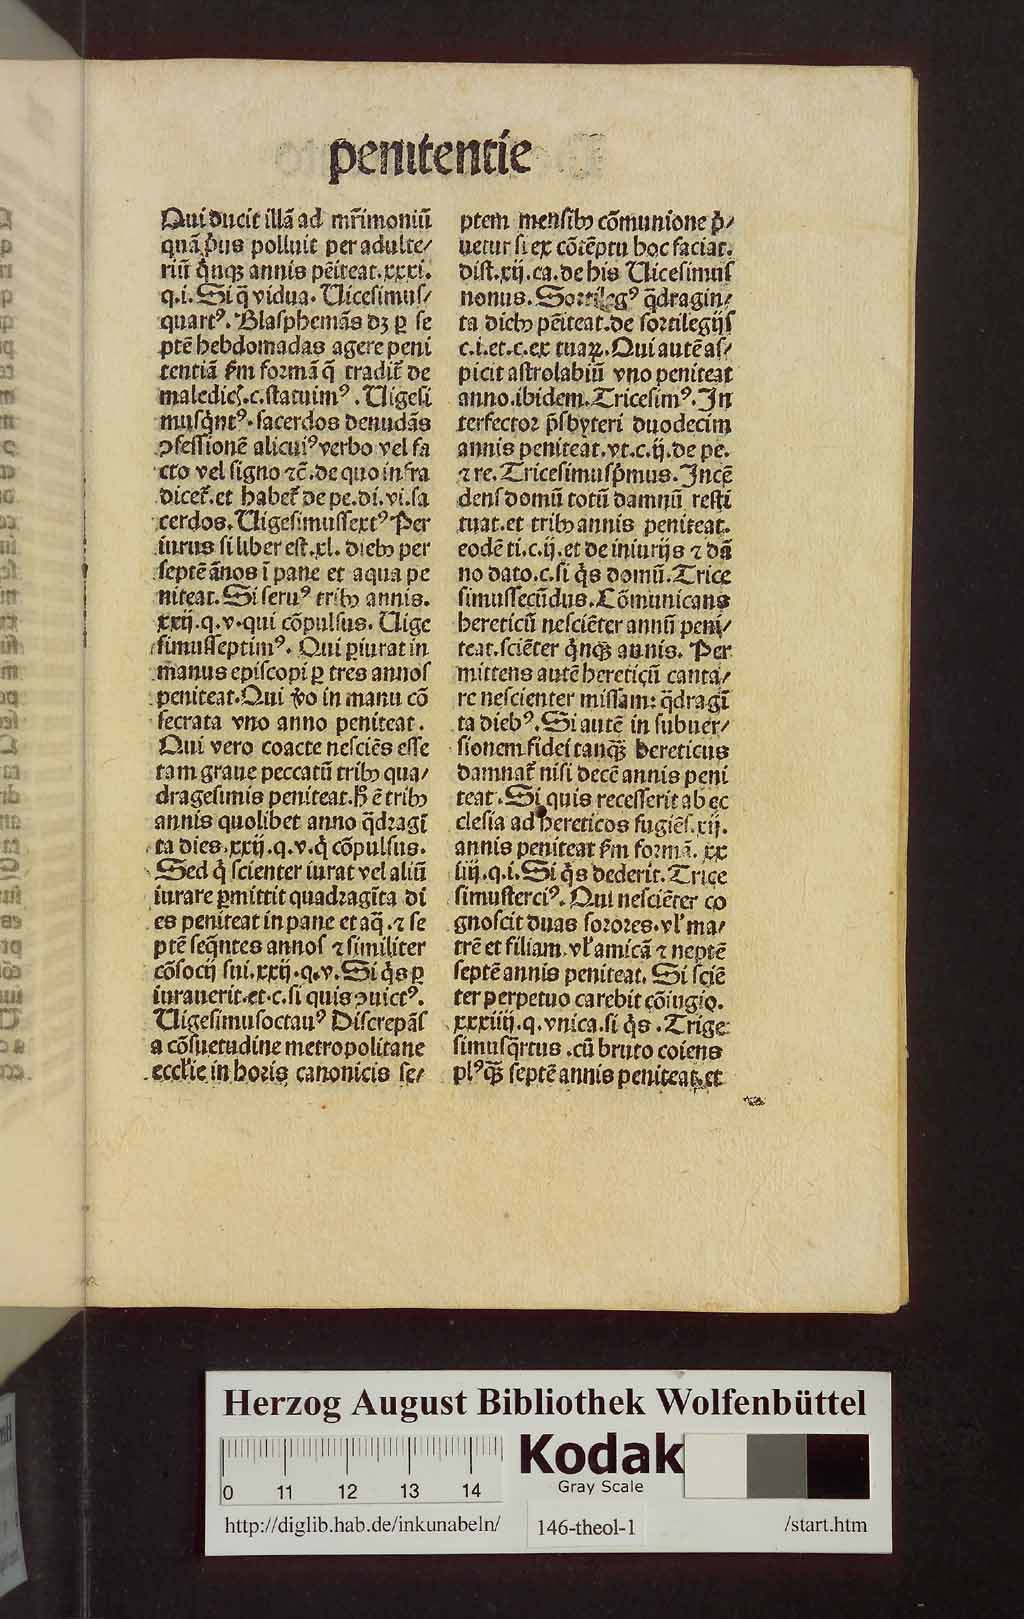 penitentie
Qui ducit illā ad mr̄imoniū
quā p̄us polluit per adulte/
riū q̇nqꝫ annis pēiteat.xxxi.
q.i. Si q̄ vidua. Uicesimus/
quartꝰ. Blasphemās dꝫ ꝑ se
ptē hebdomadas agere peni
tentiā ẜm formā q̄ tradit̃ de
maledic̃.c.statuimꝰ. Uigesi
musq̇ntꝰ. sacerdos denudās
ꝯfessionē alicuiꝰ verbo vel fa
cto vel signo ⁊c̄. de quo infra
dicet̃.et habet̃ de pe.di.vi.sa
cerdos. Uigesimussextꝰ Per
iurus si liber est.xl. diebꝫ per
septē ānos ī pane et aqua pe
niteat. Si seruꝰ tribꝫ annis.
xxij.q.v.qui cōpulsus. Uige
simusseptimꝰ. Qui ꝑiurat in
manus episcopi ꝑ tres annos
peniteat. Qui ṽo in manu cō
secrata vno anno peniteat.
Qui vero coacte nesciēs esse
tam graue peccatū tribꝫ qua/
dragesimis peniteat. ħ ē tribꝫ
annis quolibet anno q̄dragī
ta dies.xxij.q.v.q̇ cōpulsus.
Sed q̇ scienter iurat vel aliū
iurare ꝑmittit quadragīta di
es peniteat in pane et aq̄.⁊ se
ptē seq̄ntes annos ⁊ similiter
cōsocij sui.xxij.q.v. Si q̇s ꝑ
iurauerit.et.c.si quis ꝯuictꝰ.
Uigesimusoctauꝰ Discrepās
a cōsuetudine metropolitane
eccl'ie in horis canonicis se/
ptem mensibꝫ cōmunione p̄/
uetur si ex cōtēptu hoc faciat.
dist.xij.ca.de his Uicesimus
nonus. Sortilegꝰ q̄dragin/
ta diebꝫ pēiteat.de sortilegijs
c.i.et.c.ex tuaꝝ. Qui autē as/
picit astrolabiū vno peniteat
anno.ibidem. Tricesimꝰ. In
terfector p̄sbyteri duodecim
annis peniteat.vt.c.ij.de pe.
⁊ re. Tricesimusp̄mus. Incē
dens domū totū damnū resti
tuat.et tribꝫ annis peniteat.
eodē ti.c.ij.et de iniurijs ⁊ dā
no dato.c.si q̇s domū. Trice
simussecūdus. Cōmunicans
hereticū nesciēter annū peni/
teat.sciēter q̇nqꝫ annis. Per
mittens autē hereticū canta/
re nescienter missam: q̄dragī
ta diebꝰ. Si autē in subuer/
sionem fidei tanqꝫ̄ hereticus
damnat̃ nisi decē annis peni
teat. Si quis recesserit ab ec
clesia ad hereticos fugiēs.xij.
annis peniteat ẜm formā. xx
iiij.q.i. Si q̇s dederit. Trice
simusterciꝰ. Qui nesciēter co
gnoscit duas sorores.vl' ma/
trē et filiam.vl' amicā ⁊ neptē
septē annis peniteat. Si sciē
ter perpetuo carebit cōiugio.
xxxiiij.q.vnica.si q̇s. Trige
simusq̄rtus.cū bruto coiens
plꝰqꝫ̄ septē annis peniteat.et
Herzog August Bibliothek Wolfenbüttel
0 11 12 13 14
Kodak
Gray Scale
http://diglib.hab.de/inkunabeln/
146-theol-1
/start.htm